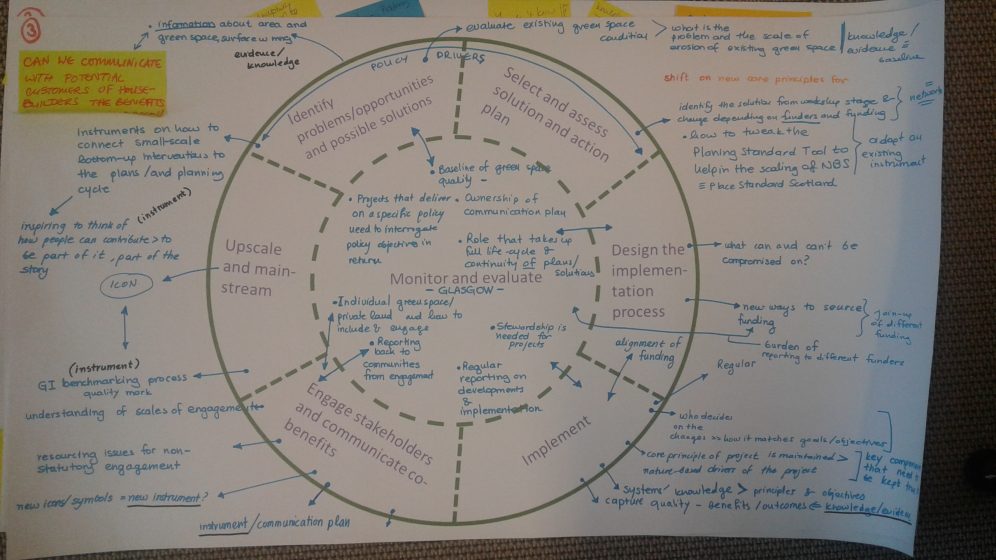 3
CAN WE COMMUNICATE
WITH POTENTIAL
CUSTOMERS OF HOUSE-
BUILDERS THE BENEFITS
• information about area and
green space, surface w
evidence/
knowledge
POLICY DRIVERS
• evaluate existing green space
condition
what is the
problem and the scale of
erosion of existing green space
knowledge/
evidence =
baseline
shift on new core principles for
identify the solution from workshop stage &
change depending on funders and funding
= network
• how to tweak the
Planing Standard Tool to
help in the scaling of NBS
= Place Standard Scotland
adapt an
existing
instrument
Identify
problems/opportunities
and possible solutions
Select and assess
solution and action
plan
Instruments on how to
connect small-scale
bottom-up interventions to
the plans/and planning
cycle
(instrument)
inspiring to think of
how people can contribute > to
be part of it, part of the
story
ICON
(instrument)
GI benchmarking process
quality mark
understanding of scales of engagement
resourcing issues for non-
statutory engagement
new icons/symbols = new instrument?
instrument/communication plan
Upscale
and main-
stream
• Baseline of green space
quality –
• Projects that deliver
on a specific policy
need to interrogate
policy objective in
return
• Ownership of
communication plan
• Role that takes up
full life-cycle &
continuity of plans/
solutions
Monitor and evaluate
– GLASGOW –
• Individual greenspace/
private land and how to
include & engage
• Reporting
back to
communities
from engagement
• Stewardship is
needed for
projects
• Regular
reporting on
developments
&
implementation
Design the
implemen-
tation
process
what can and can't be
compromised on?
new ways to source
funding
join-up
of different
funding
burden of
reporting to different funders
alignment of
funding
Regular
Engage stakeholders
and communicate co-
benefits
Implement
who decides
on the
changes >> how it matches goals/objectives
core principle of project is maintained >
nature-based driver of the project
key
that need
be kept
systems' knowledge > principles & objectives
capture quality – benefits/outcomes = knowledge/evidence